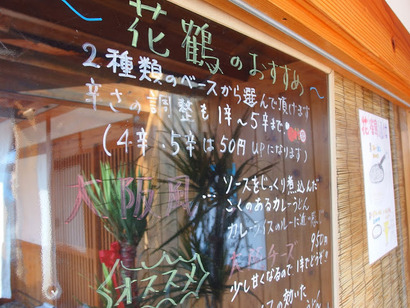 〜花鶴のおすすめ〜
2種類のベースから選んで頂けます
辛さの調整も1辛〜5辛まで
(4辛・5辛は50円UPになります)
大阪風…ソースをじっくり煮込んだ
こくのあるカレーうどん
カレーライスのルーに近い感
950円
大阪チーズ
少し甘くなるので1辛どうぞ
オススメ
花鶴